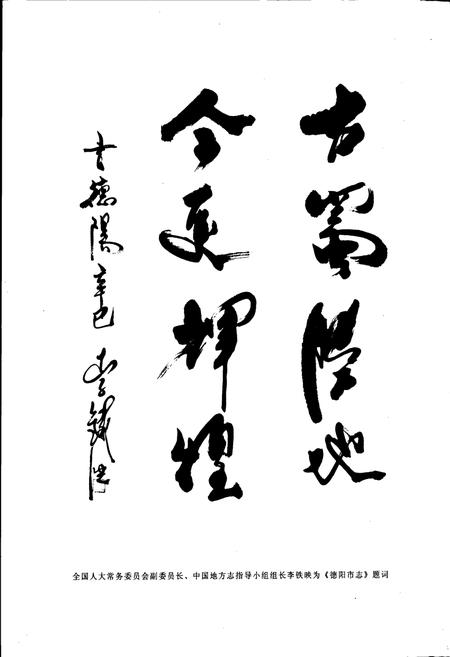 古蜀勝地
今更輝煌
書德陽 辛巳 李鐵映
全国人大常务委员会副委员长、中国地方志指导小组组长李铁映为《德阳市志》题词